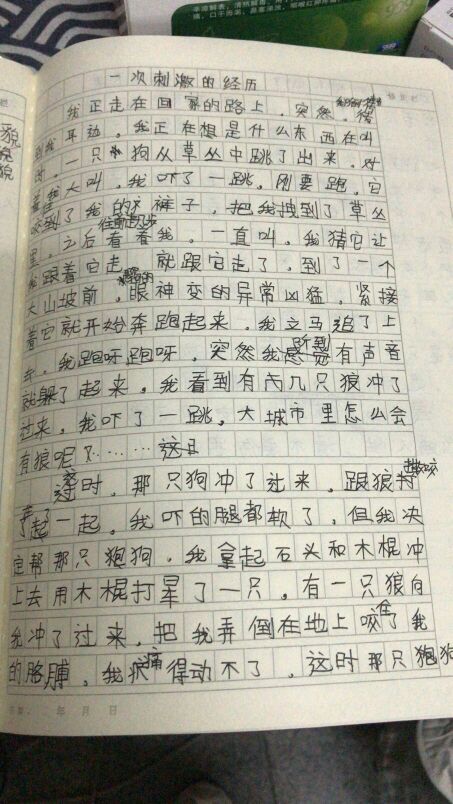 一次刺激的经历
我正走在回家的路上，突然，
到我耳边。我正在想是什么东西在叫
时，一只狗从草丛中跳了出来，对
着我大叫，我吓了一跳，刚要跑，它
咬到了我的裤子，把我拽到了草丛
里，之后看着我，一直叫，我猜它让
我跟着它走，就跟它走了，到了一个
大山坡前，眼神变的异常凶猛，紧接
着它就开始奔跑起来，我立马追了上
去，我跑呀跑呀，突然我听到有声音
就躲了起来，我看到有六几只狼冲了
过来，我吓了一跳。大城市里怎么会
有狼呢？……
这时，那只狗冲了过来，跟狼
一起，我吓的腿都软了，但我决
定帮那只狗，我拿起石头和木棍冲
上去用木棍打晕了一只，有一只狼向
我冲了过来，把我弄倒在地上咬住了我
的胳膊，我痛得动不了，这时那只
年 月 日